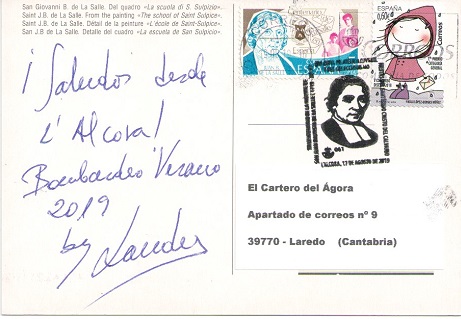 San Giovanni B. de La Salle. Del quadro «La scuola di S. Sulpizio».
Saint J.B. de La Salle. From the painting «The school of Saint Sulpice».
Saint J.B. de La Salle. Détail de la peinture «L'école de Saint-Sulpice».
San J.B. de La Salle. Detalle del cuadro «La escuela de San Sulpicio».
¡Saludos desde
L'Alcora!
Bombardeo Verano
2019
by
ESPAÑA
0,60€
Correos
L'ALCORA, 17 DE AGOSTO DE 2019
El Cartero del Ágora
Apartado de correos nº 9
39770 - Laredo (Cantabria)